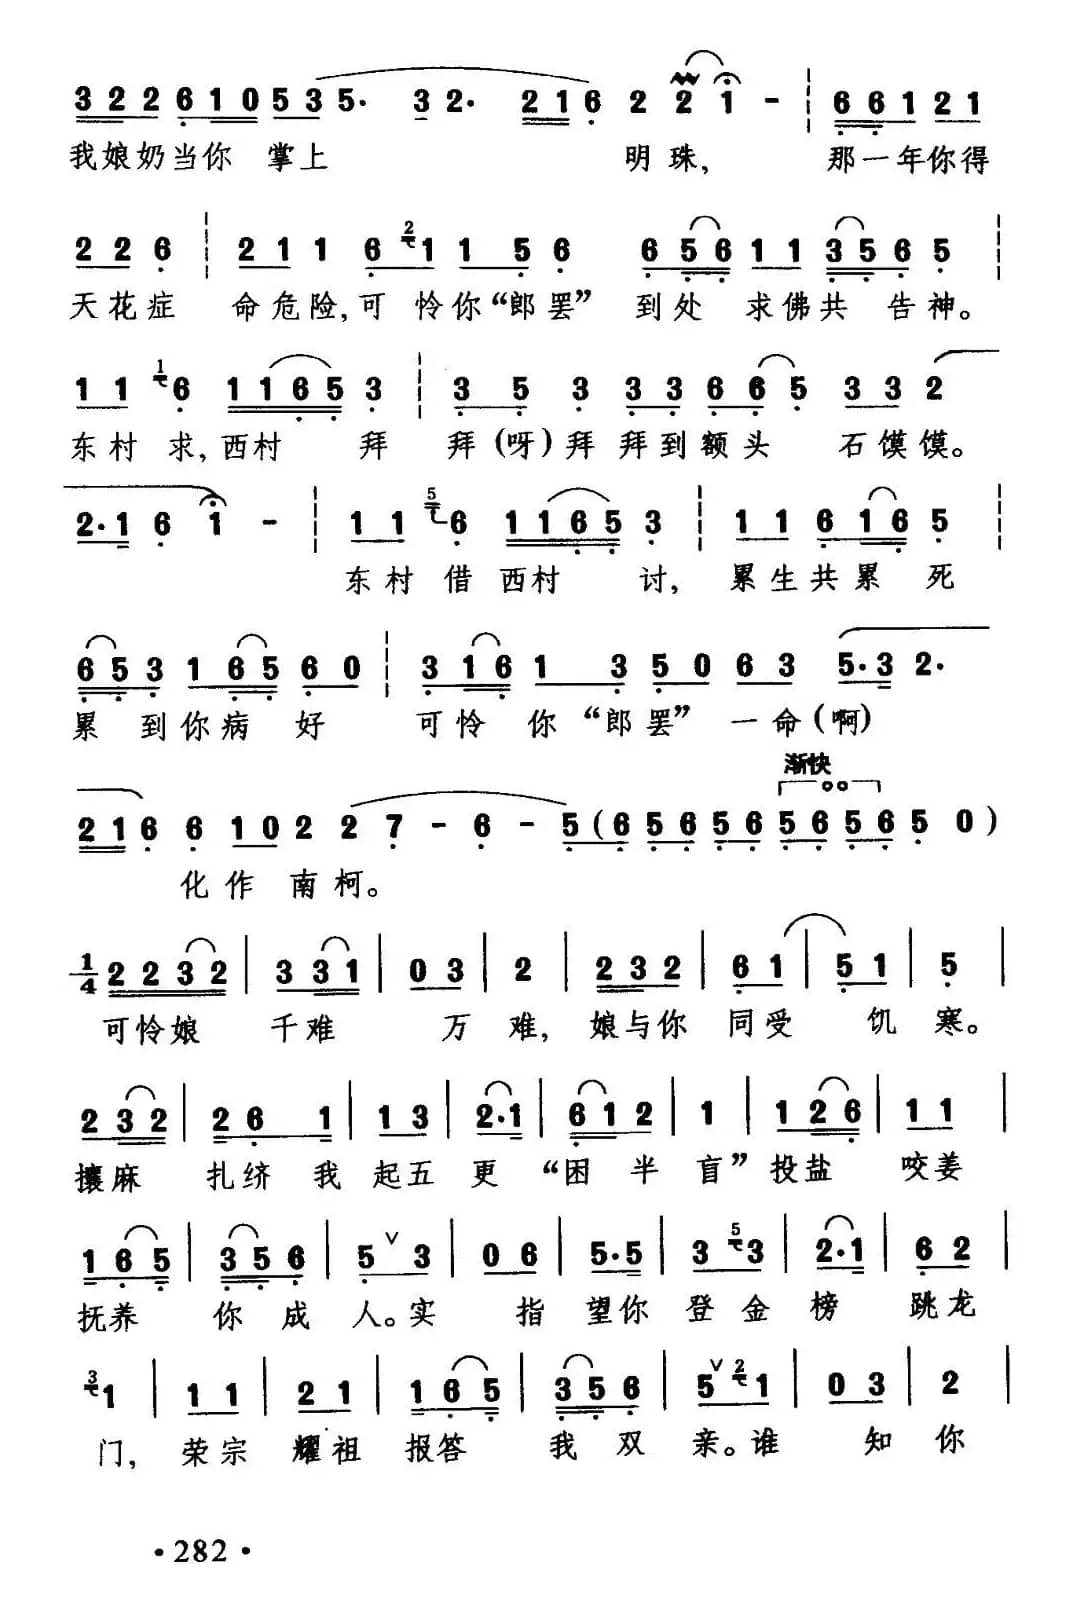 3 2 2 6 1 0 5 3 5· 3 2· 2 1 6 2 2 1 - 6 6 1 2 1
我娘奶当你 掌上 明珠, 那一年你得
2 2 6 2 1 1 6 2 1 1 5 6 6 5 6 1 1 3 5 6 5
天花症 命危险,可 怜你“郎罢” 到处 求佛共 告神。
1 1 1 6 1 1 6 5 3 3 5 3 3 3 6 6 5 3 3 2
东村 求,西村 拜 拜(呀)拜 拜到额头 石馍馍。
2·1 6 1 - 1 1 5 6 1 1 6 5 3 1 1 6 1 6 5
东村 借 西村 讨, 累生共累 死
6 5 3 1 6 5 6 0 3 1 6 1 3 5 0 6 3 5·3 2·
累 到你病 好 可怜 你 “郎罢” 一命(啊)
渐快
2 1 6 6 1 0 2 2 7 - 6 - 5 (6 5 6 5 6 5 6 5 6 5 0)
化作 南柯。
1/4 2 2 3 2 3 3 1 0 3 2 2 3 2 6 1 5 1 5
可怜娘 千难 万 难, 娘与你 同受 饥 寒。
2 3 2 2 6 1 1 3 2·1 6 1 2 1 1 2 6 1 1
攘麻 扎绩 我 起五 更 “困 半 盲”投盐 咬姜
1 6 5 3 5 6 5 ∨ 3 0 6 5·5 3 5 3 2·1 6 2
抚养 你 成 人。实 指 望你 登 金 榜 跳龙
3 1 1 1 2 1 1 6 5 3 5 6 5 ∨ 2 1 0 3 2
门, 荣宗 耀祖 报答 我 双 亲。谁 知 你
· 282 ·